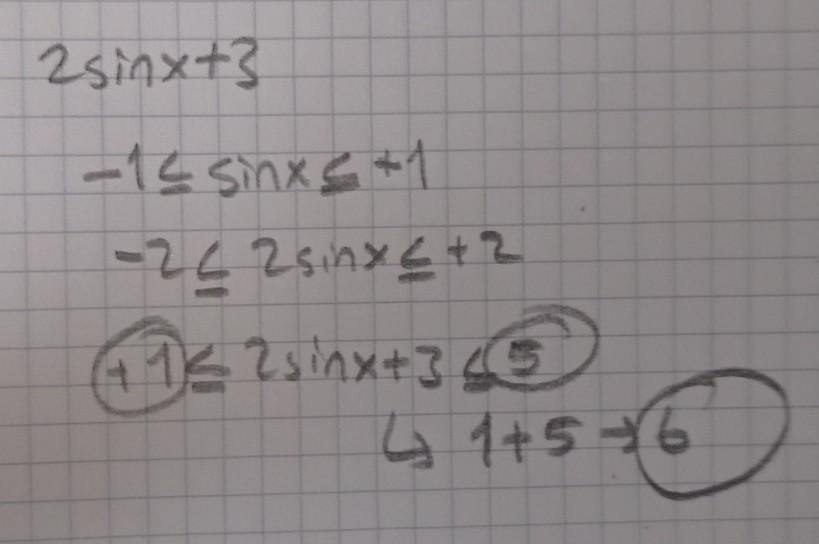 2sinx+3
-1≤ sinx≤ +1
-2≤ 2sinx≤ +2
+1≤ 2sinx+3 ≤5
↳ 1+5→6